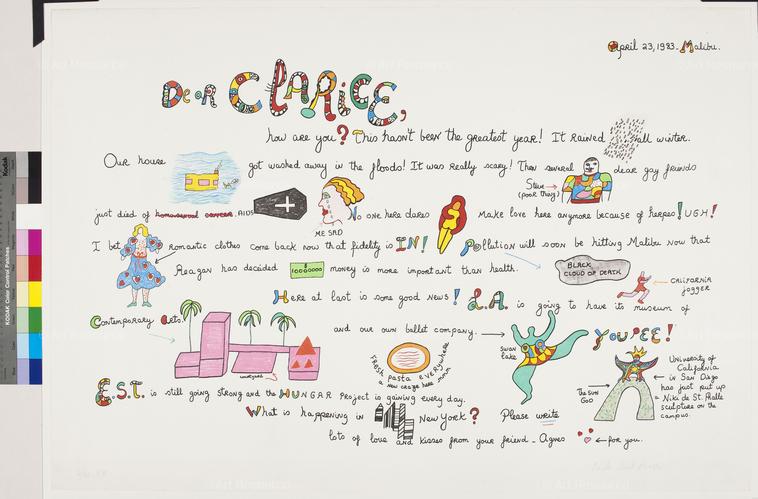 April 23, 1983. Malibu.
Dear CLARICE,
how are you? This hasn't been the greatest year! It Rained all winter.
Our house got washed away in the floods! It was really scary! Then several dear gay friends
Steve (poor thing)
just died of homosexual cancer. AIDS No one here dares Make love here anymore because of herpes! UGH!
ME SAD
I bet Romantic clothes come back now that fidelity is IN! Pollution will soon be hitting Malibu now that
Reagan has decided money is more important than health.
BLACK CLOUD OF DEATH
CALIFORNIA jogger
Here at last is some good news! L.A. is going to have its museum of
Contemporary Arts. and our own ballet company. YOUPEE!
Swan lake
FRESH pasta EVERYwhere
a new craze here mmm
The SUN GOD
University of California in San Diego has just put up a Niki de St. Phalle sculpture on the campus.
E.S.T. is still going strong and the HUNGAR Project is gaining every day.
What is happening in New York? Please write
lots of love and kisses from your friend - Agnes ← for you.